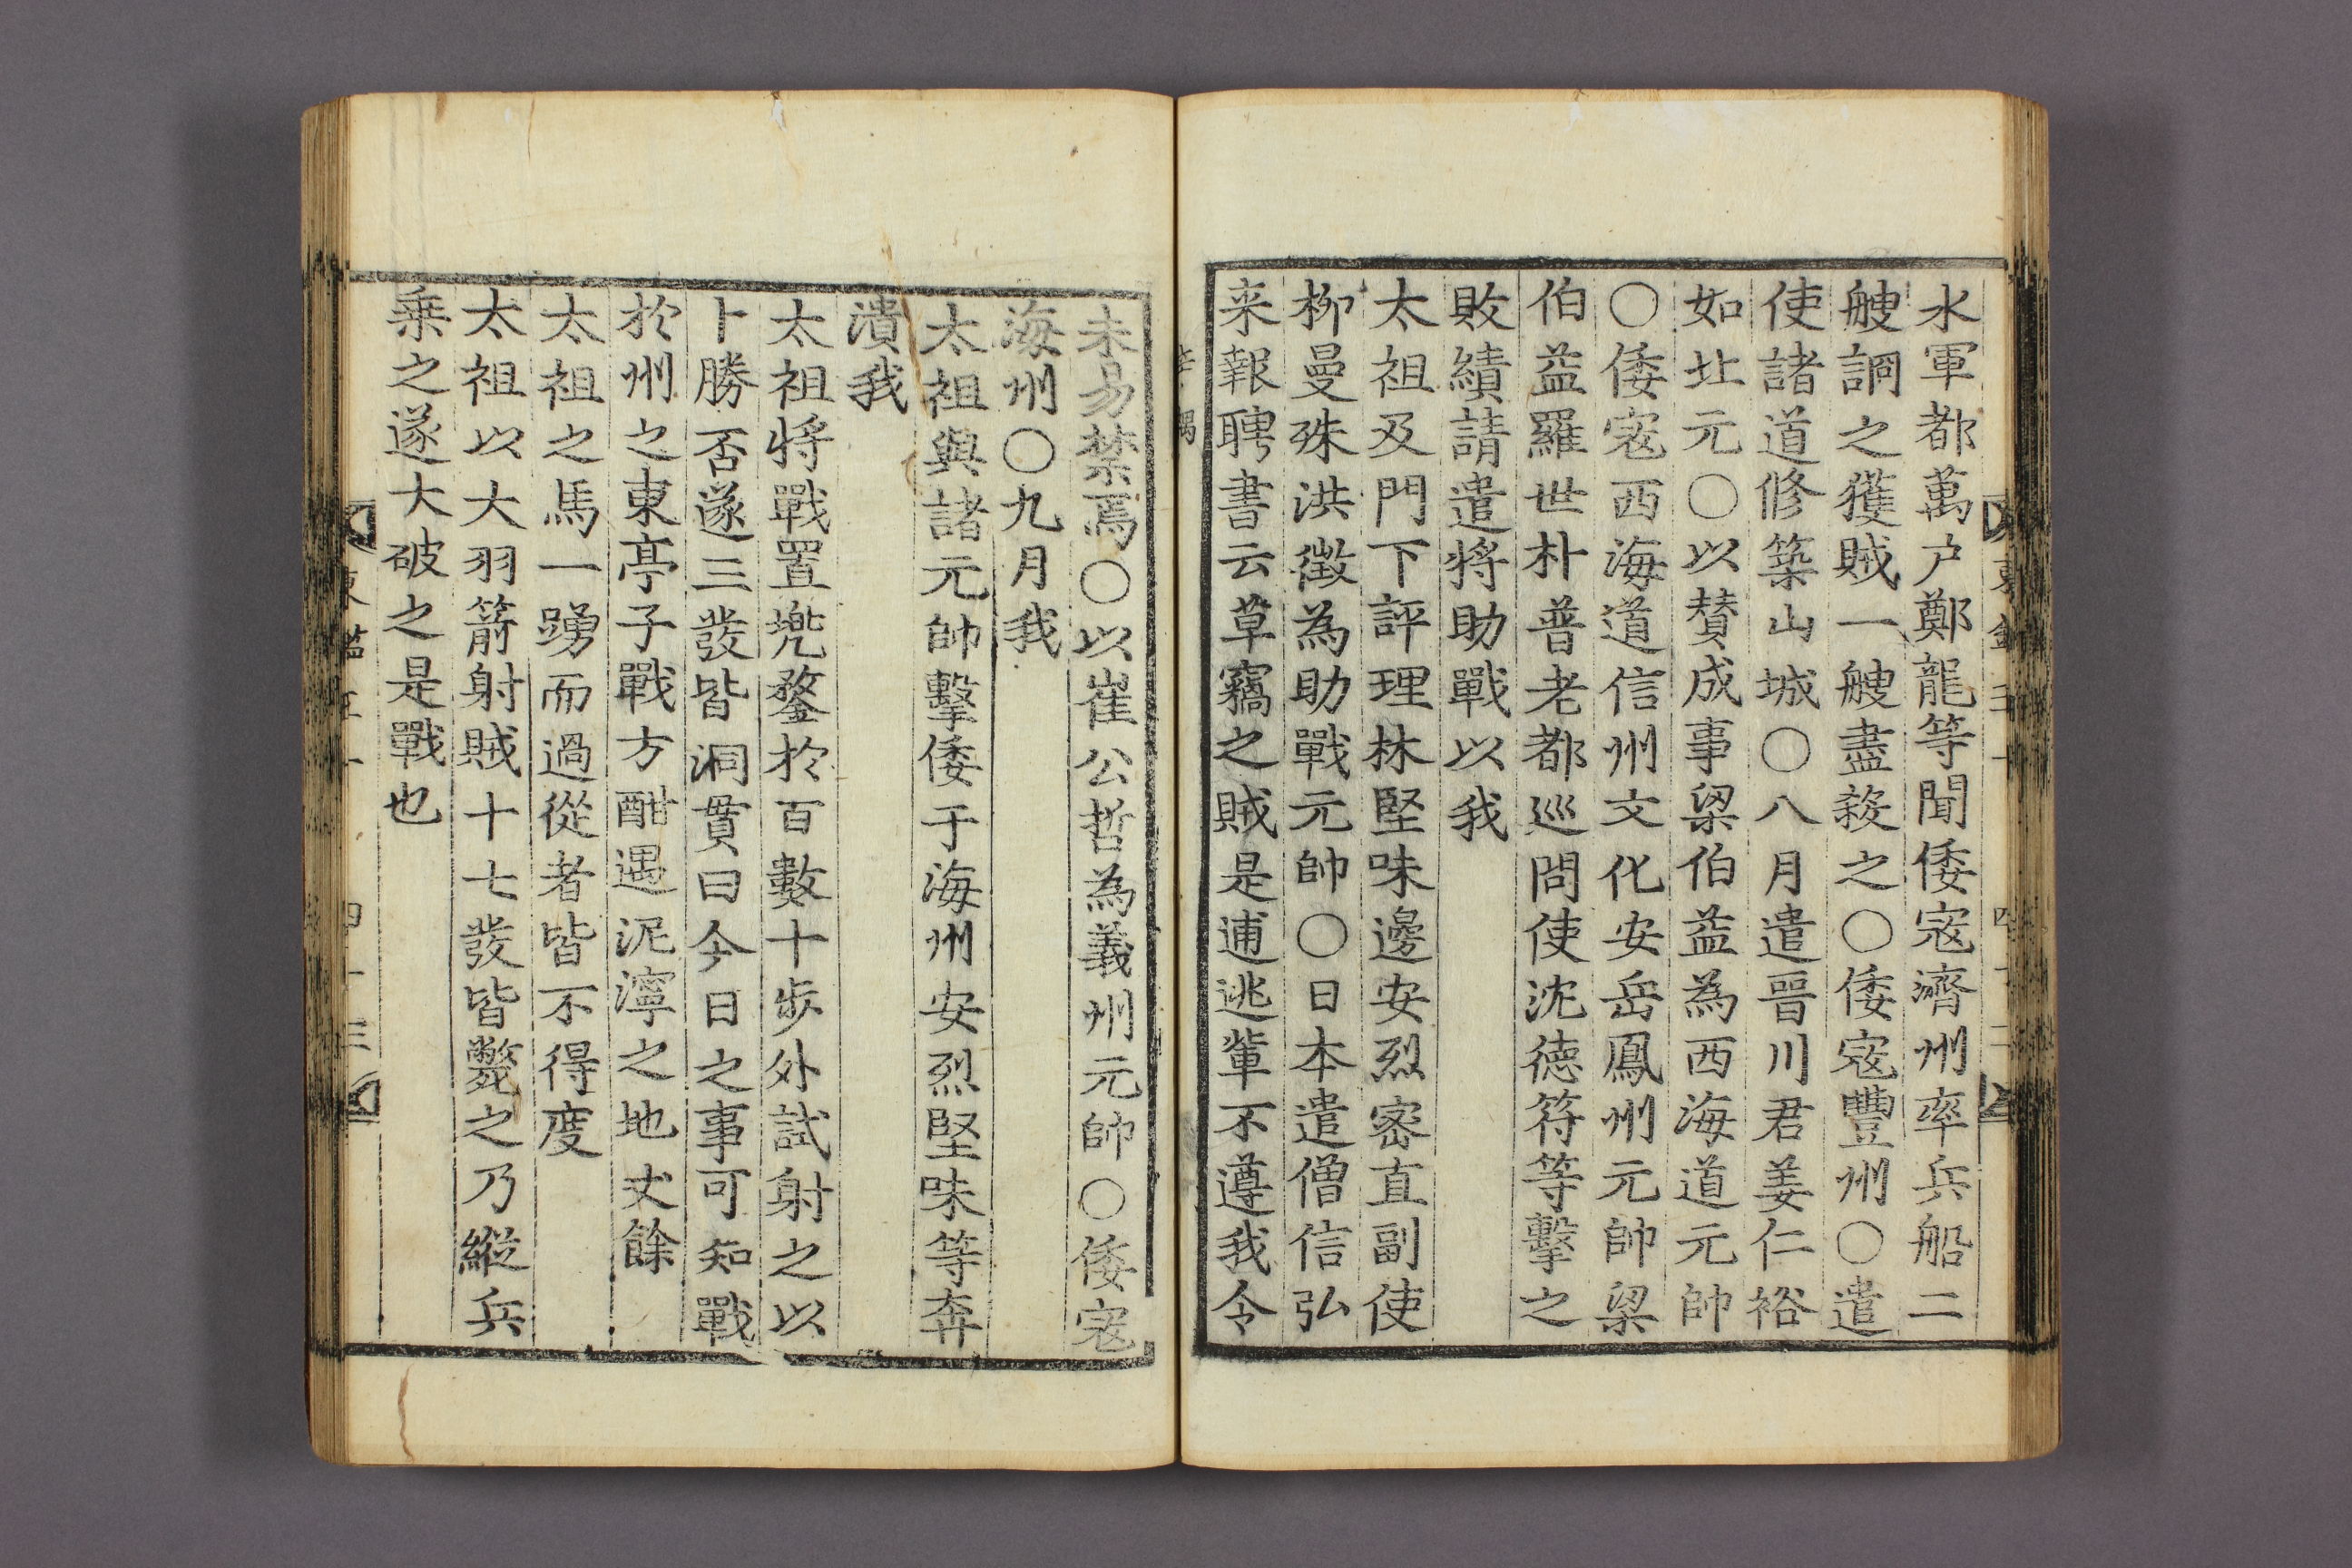 水軍都萬户鄭龍等聞倭寇濟州率兵船二
艘詷之獲賊一艘盡殺之〇倭寇豐州〇遣
使諸道修築山城〇八月遣晉川君姜仁裕
如北元〇以賛成事梁伯益為西海道元帥
〇倭寇西海道信州文化安岳鳳州元帥梁
伯益羅世朴普老都巡問使沈德符等擊之
敗績請遣将助戰以我
太祖及門下評理林堅味邊安烈密直副使
柳曼殊洪徵為助戰元帥〇日本遣僧信弘
来報聘書云草竊之賊是逋逃輩不遵我令
未易禁焉〇以崔公哲為義州元帥〇倭寇
海州〇九月我
太祖與諸元帥擊倭于海州安烈堅味等奔
潰我
太祖将戰置兠鍪於百數十步外試射之以
卜勝否遂三發皆洞貫曰今日之事可知戰
於州之東亭子戰方酣遇泥濘之地丈餘
太祖之馬一踴而過從者皆不得度
太祖以大羽箭射賊十七發皆斃之乃縱兵
乘之遂大破之是戰也
四十三